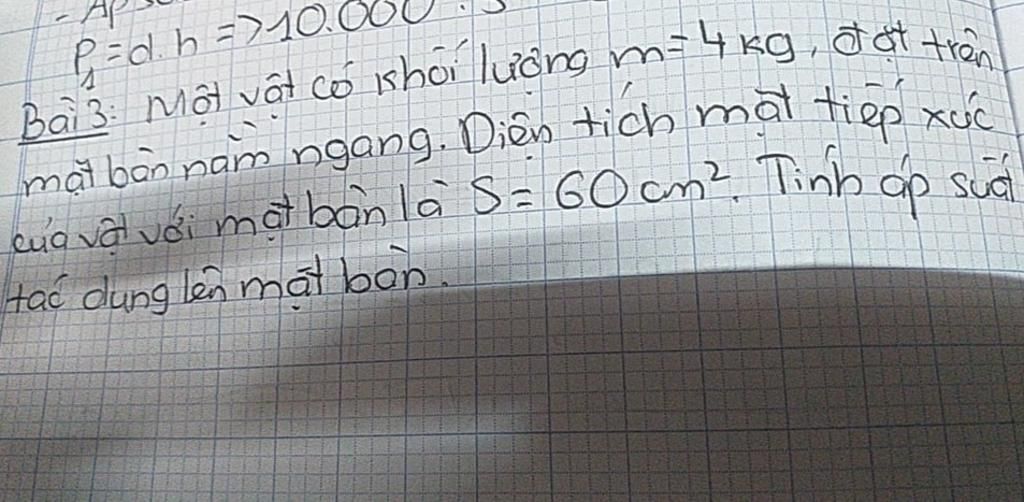 - Áp
P₁ = d.h => 10.000
Bài 3: Một vật có khối lượng m = 4 kg, đặt trên
mặt bàn nằm ngang. Diện tích mặt tiếp xúc
của vật với mặt bàn là S = 60 cm². Tính áp suất
tác dụng lên mặt bàn.